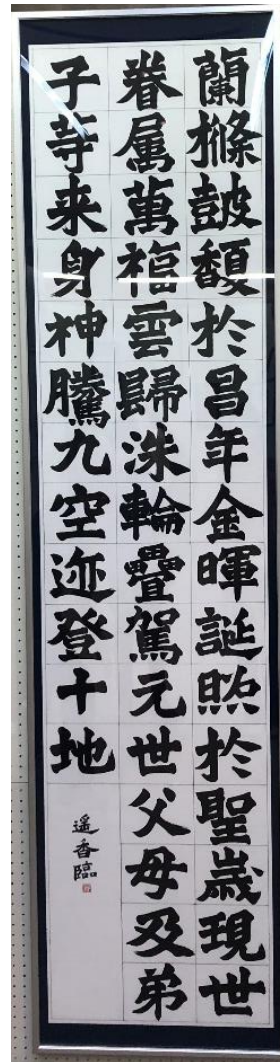 蘭條皷馥於昌年金暉誕照於聖歳現世
眷属萬福雲歸洙輪疊駕元世父母及弟
子等来身神騰九空迹登十地
遥香臨